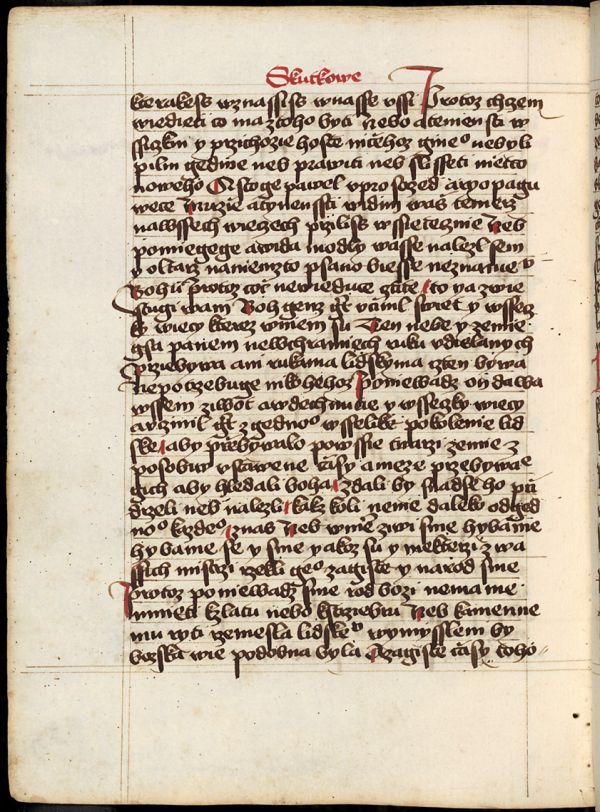 Skutkowe
kterakess wznassiss wnasse vssi Protoz chczem
wiedieti czo ma ztoho byti Nebo atenienssti w
ssiczkni y przichozie hoste niczehoz gineo nebyli
pilni gedine neb prawiti neb slisseti nieczo
noweho A stoge pawel vprostrzed arropagu
wece Muzie atynenssti widim was temerz
nawssech wieczech przilis wssietecznie Neb
pomiegege a wida modly wasse nalezl sem
y oltarz naniemzto psano biesse neznamev
Bohu Protoz coz newieduce cztite to ya zwie
stugi wam Boh genz gt vcinil swiet y wssecz
ky wieczy kterez wniem su Ten nebe y zemie
gsa panem newchramiech ruku vdielanych
przebywa ani rukama lidskyma czten bywa
nepotrzebuge nikohehoz Poniewadz on dawa
wssem ziwot a wdechnutie y wssecky wieczy
a vcinil gt z gednoo wsselike pokolenie lid
ske aby prebywalo powssie twarzi zemie z
posobiw vstawene czasy a meze przebywae
gich aby hledali boha zdali by snadse ho przi
drzeli neb nalezli kakzkoli nenie daleko odged
noo kazdeo znas Neb wniem ziwi sme hybame
hybame se y sme yakoz su y niekterzi z wa
ssich mistrzi rzekli geo zagiste y narod sme
Protoz poniewadz sme rod bozi nemame
mnieti kzlatu nebo kstrziebru Neb kamenne
mu ryti rzemesla lidskev wymysslem by
bozska wiec podobna byla A zagiste czasy toho